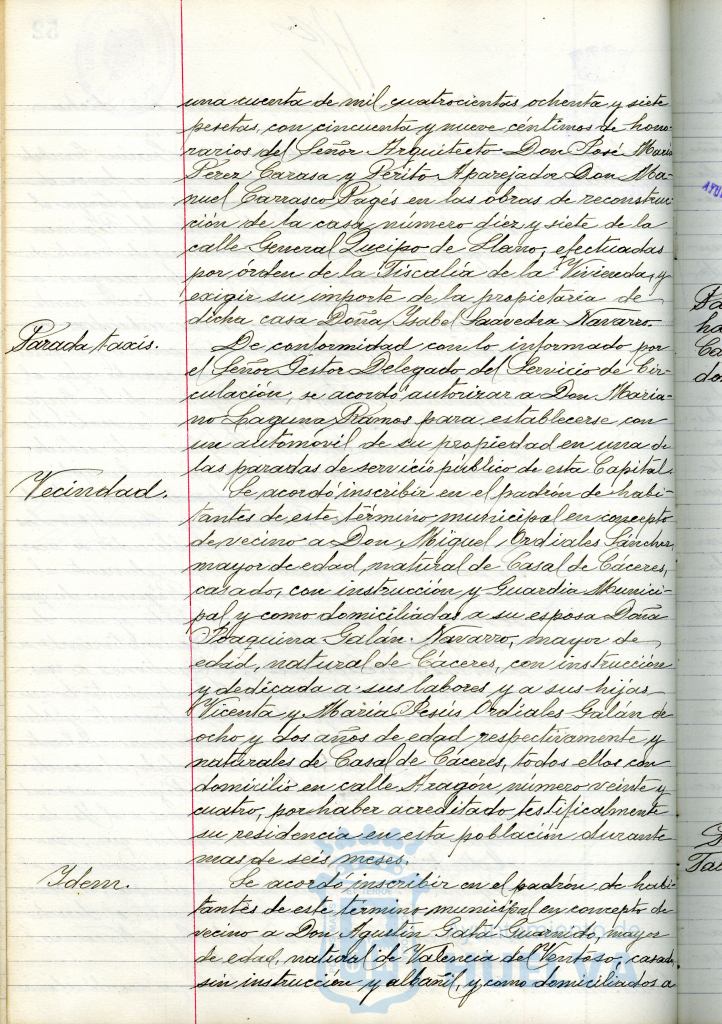 una cuenta de mil cuatrocientas ochenta y siete
pesetas, con cincuenta y nueve céntimos de hono-
rarios del Señor Arquitecto Don José María
Pérez Carasa y Périto Aparejador Don Ma-
nuel Carrasco Pagés en las obras de reconstruc-
ción de la casa número diez y siete de la
calle General Queipo de Llano, efectuadas
por órden de la Fiscalía de la Vivienda, y
exigir su importe de la propietaria de
dicha casa Doña Isabel Saavedra Navarro.
Parada taxis.
De conformidad con lo informado por
el Señor Gestor Delegado del Servicio de Cir-
culación, se acordó autorizar a Don Maria-
no Laguna Ramos para establecerse con
un automovil de su propiedad en una de
las paradas de servicio público de esta Capital.
Vecindad.
Se acordó inscribir en el padrón de habi-
tantes de este término municipal en concepto
de vecino a Don Miguel Ordiales Sánchez,
mayor de edad, natural de Casal de Cáceres,
casado, con instrucción y Guardia Munici-
pal, y como domiciliadas a su esposa Doña
Joaquina Galán Navarro, mayor de
edad, natural de Cáceres, con instrucción
y dedicada a sus labores y a sus hijas
Vicenta y María Jesús Ordiales Galán de
ocho y dos años de edad respectivamente y
naturales de Casal de Cáceres, todos ellos con
domicilio en calle Aragón, número veinte y
cuatro, por haber acreditado testificalmente
su residencia en esta población durante
mas de seis meses.
Idem.
Se acordó inscribir en el padrón de habi-
tantes de este término municipal en concepto de
vecino a Don Agustín Gata Guarnido, mayor
de edad, natural de Valencia del Ventoso, casado
sin instrucción y albañil, y como domiciliados a
HUELVA